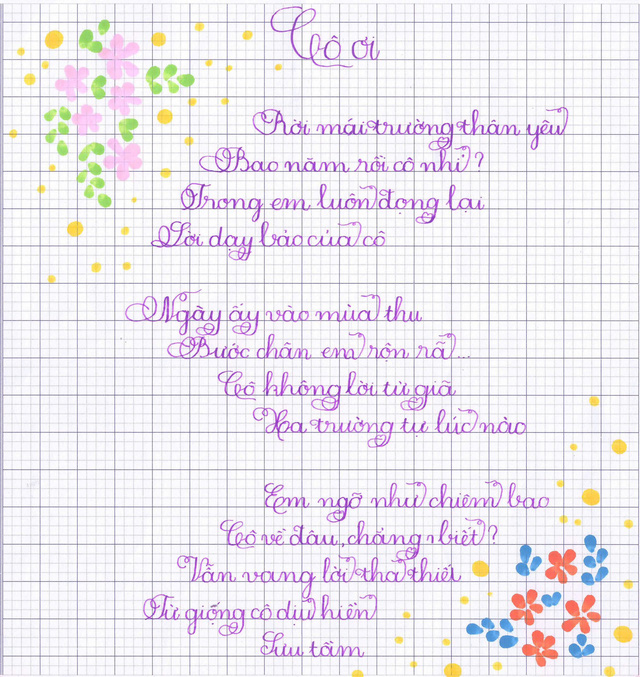 Cô ơi
Rời mái trường thân yêu
Bao năm rồi cô nhỉ?
Trong em luôn đọng lại
Lời dạy bảo của cô
Ngày ấy vào mùa thu
Bước chân em rộn rã...
Cô không lời từ giã
Xa trường tự lúc nào
Em ngỡ như chiêm bao
Cô về đâu, chẳng biết?
Vẫn vang lời tha thiết
Từ giọng cô dịu hiền
Sưu tầm